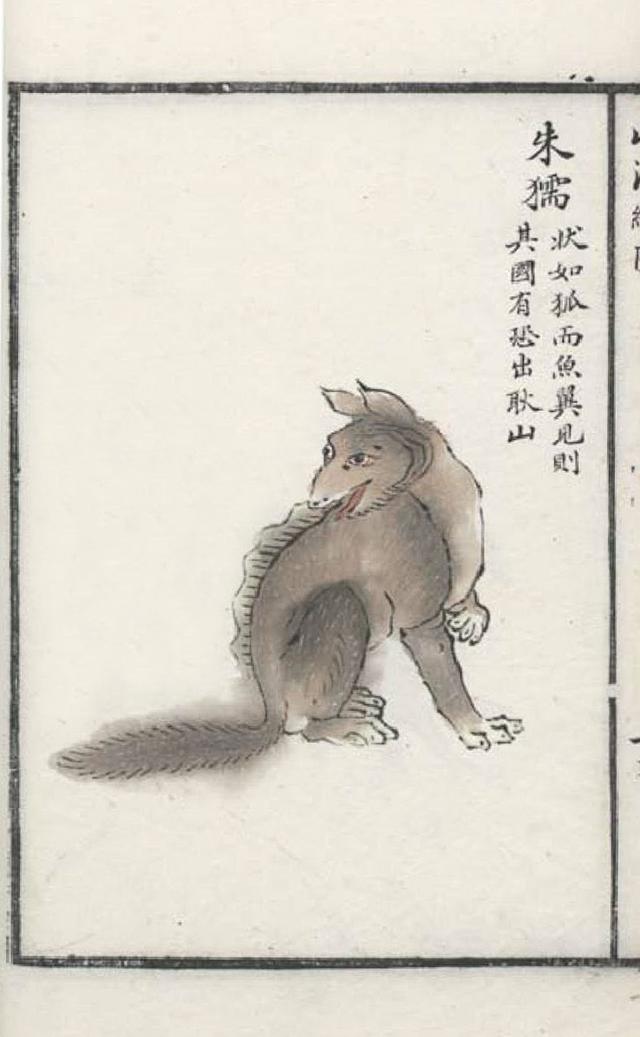 朱獳
狀如狐而魚翼見則
其國有恐出耿山